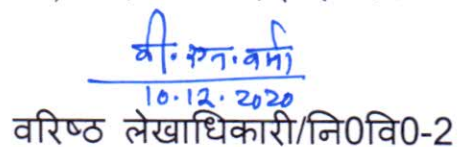 वी. एन. वर्मा
10.12.2020
वरिष्ठ लेखाधिकारी/नि0वि0-2